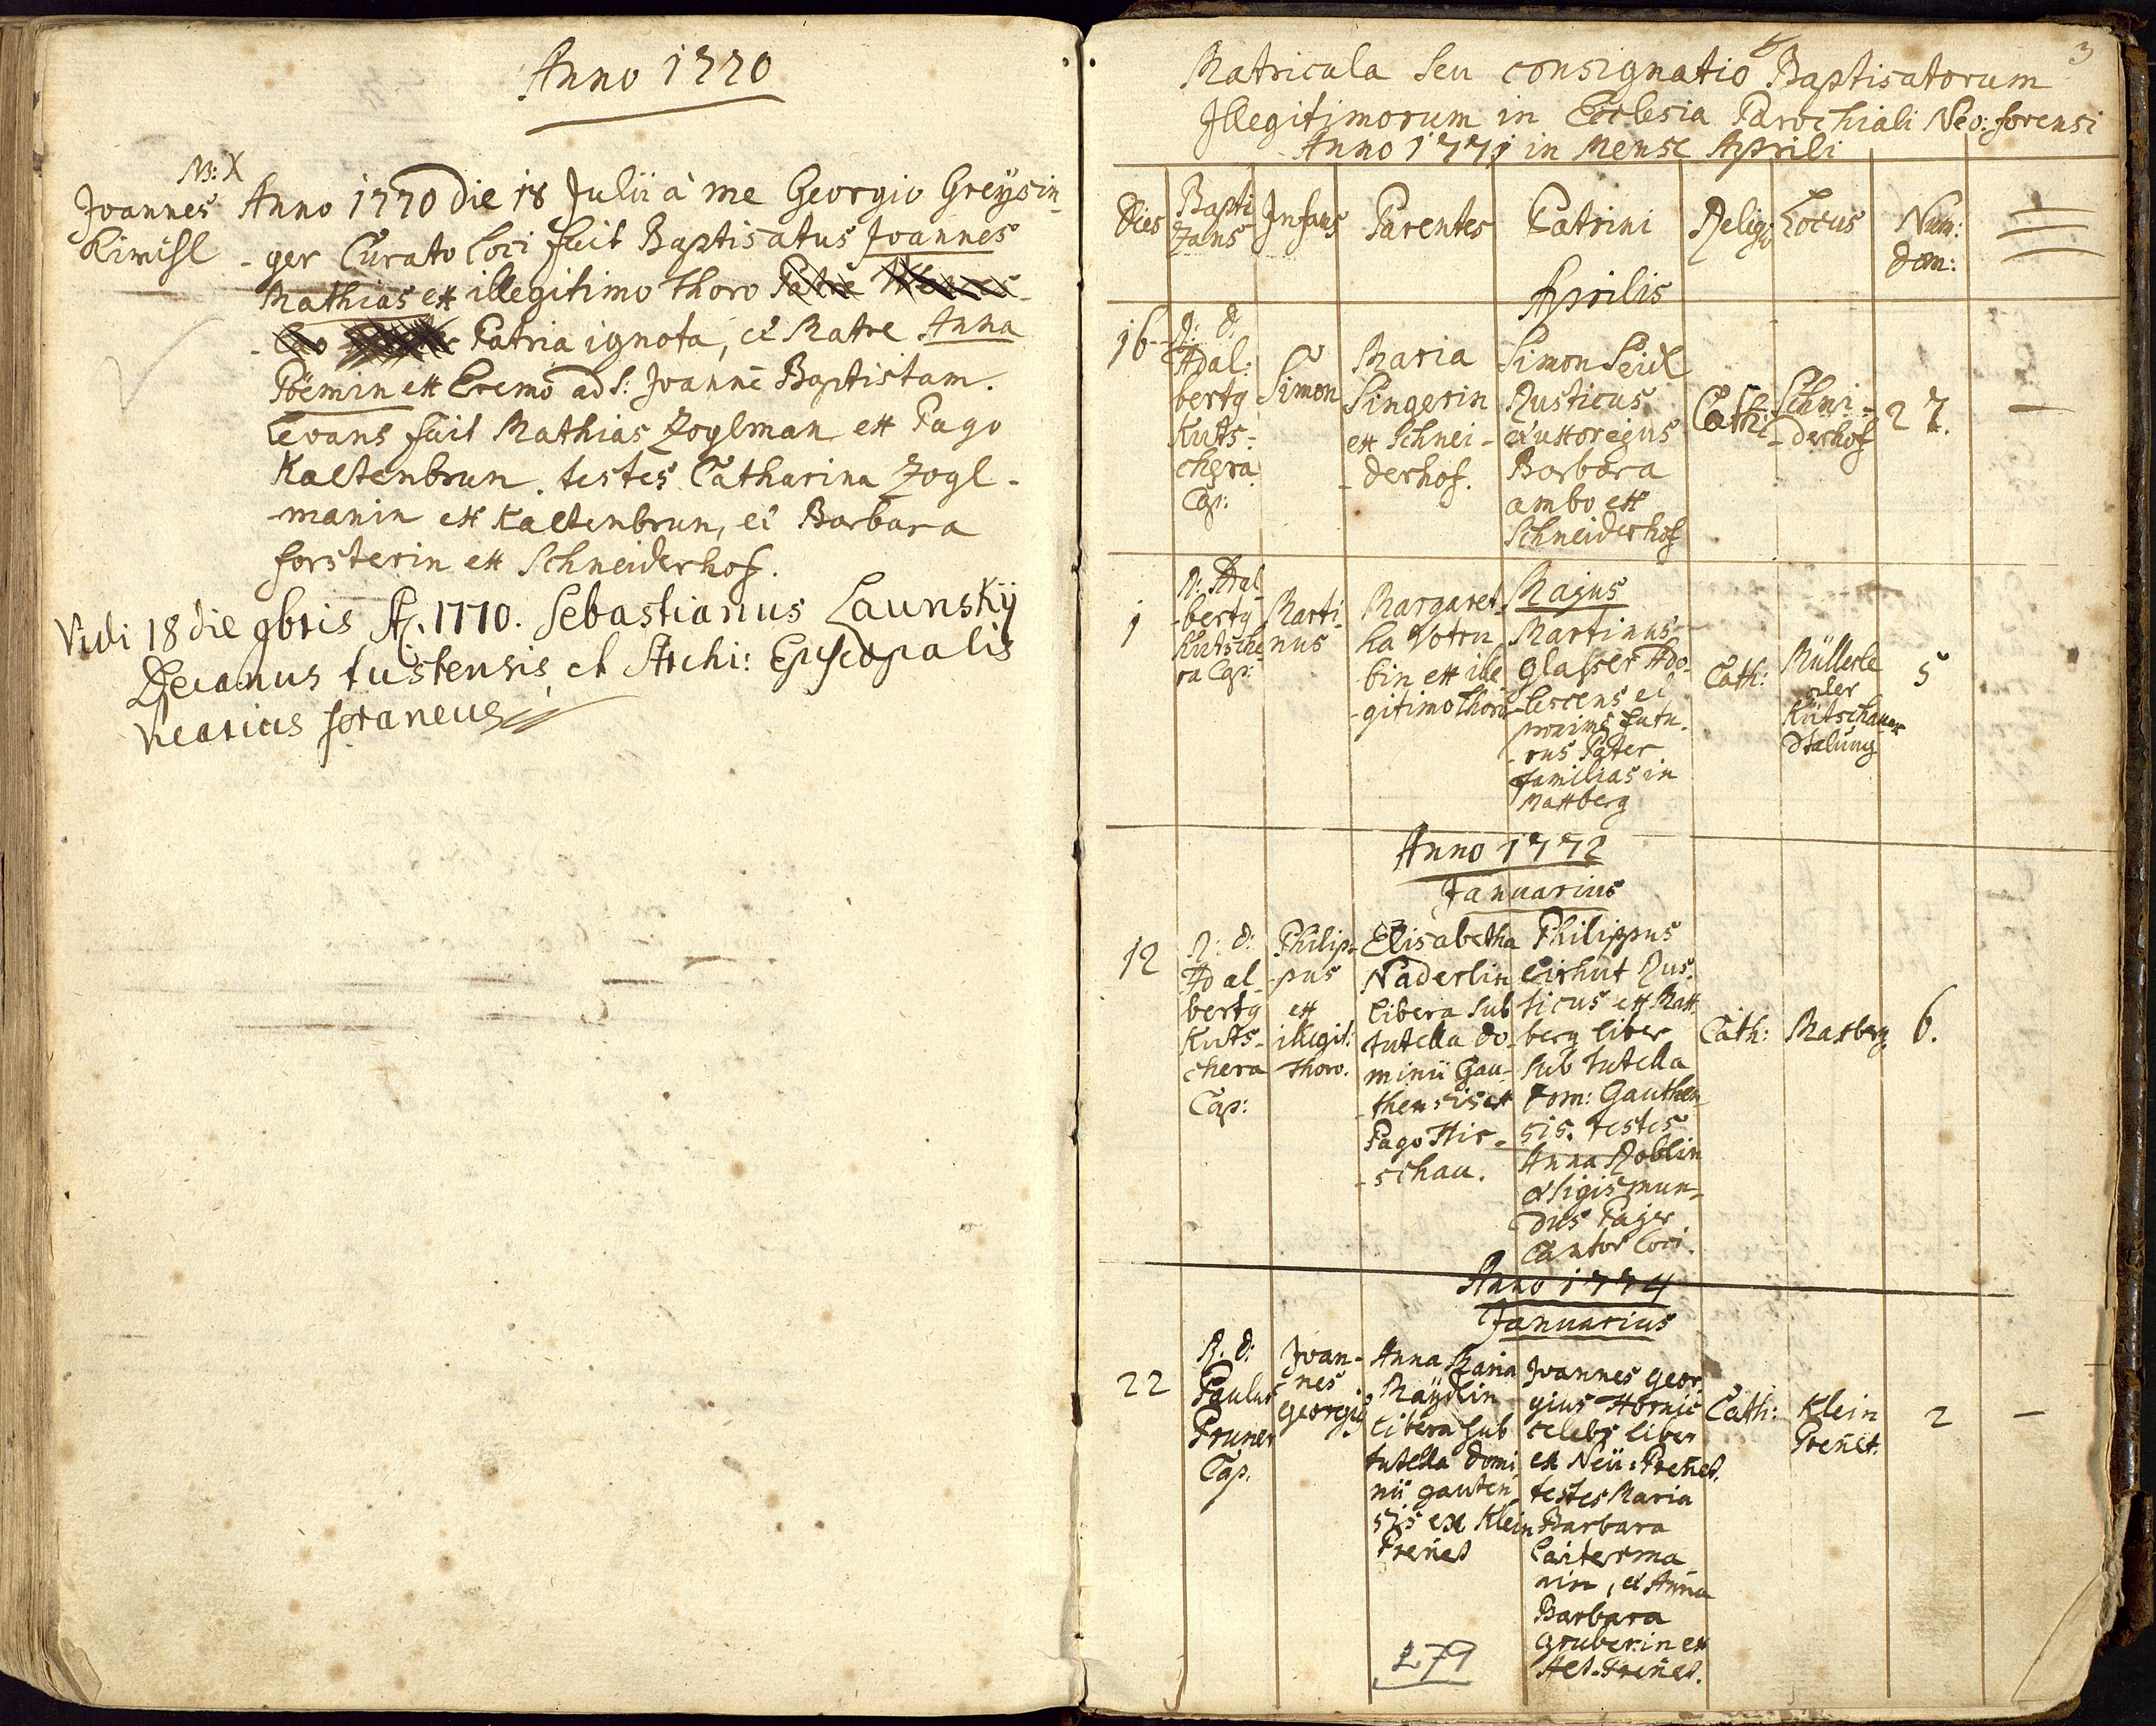 Anno 1770
NB: X
Joannes
Anno 1770 die 18 Julii à me Georgio Greysin-
-ger Curato loci fuit Baptisatus Joannes
Mathias ex illegitimo thoro Patre
Patria ignota, et Matre Anna
Pöemin ex Eremo ad S: Joannē Baptistam.
Levans fuit Mathias Zoglman ex Pago
Kaltenbrun. testes Catharina Zogl-
-manin ex Kaltenbrun, et Barbara
forsterin ex Schneiderhof.
Vidi 18 die 9bris A. 1770. Sebastianus Launskÿ
Decanus tustensis et Archi: Episcopalis
Vicarius foraneus
3
Matricula seu consignatio Baptisatorum
Illegitimorum in Ecclesia Parochiali Neo: forensi
Anno 1771 in Mense Aprili
Dies
Bapti
zans
Infans
Parentes
Patrini
Religio
Locus
Num:
dom:
Aprilis
16
R: d:
Adal:
bertg
Kuts-
chera
Cap:
Simon
Maria
Singerin
ex Schnei-
-derhof.
Simon Seidl
Rusticus
et uxor ejus
Barbara
ambo ex
Schneiderhof
Cath:
Schnei-
-derhof
27.
—
Majus
1
R: Adal
-bertg
Kutsche
ra Cap:
Marti-
nus
Margaret
ha Votru
bin ex ille
-gitimo thoro
Martinus
glasser Ado-
-lescens et
proxime futu-
-rus Pater
familias in
Maxberg
Cath:
Müllerle
oder
Kutschauer
Stalung
5
Anno 1772
Januarius
12
R: d:
Adal-
bertg
Kuts-
chera
Cap:
Philip-
-pus
ex
illegit:
thoro.
Elisabetha
Naderlin
libera sub
tutella do-
minii Gau-
-thensis ex
Pago Hir-
-schau.
Philippus
Eirhut Rus-
ticus ex Max
berg liber
sub tutella
Dom: Gauthen-
sis. testes
Anna Roblin
et Sigismun-
dus Pajer
Cantor loci.
Cath:
Maxberg
6.
Anno 1774
Januarius
22
R. d:
Paulus
Pruner
Cap.
Joan-
nes
Georgig
Anna Maria
Maÿdlin
libera sub
tutella domi
nii gauten
sis ex Klein
Preñet
Joannes geor
gius Hornic
celebs liber
ex Neü: Preñet.
testes Maria
Barbara
Laiterma
nin, et Anna
Barbara
Gruberin ex
Alt-Preñet.
Cath:
Klein
Preñet.
2
—
279